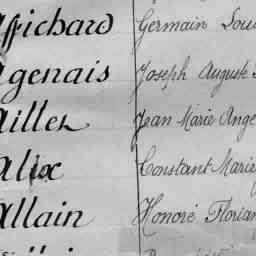 Affichard Germain Louis
Agenais Joseph Auguste
Ailles Jean Marie Ange
Alix Constant Marie
Allain Honoré Florian